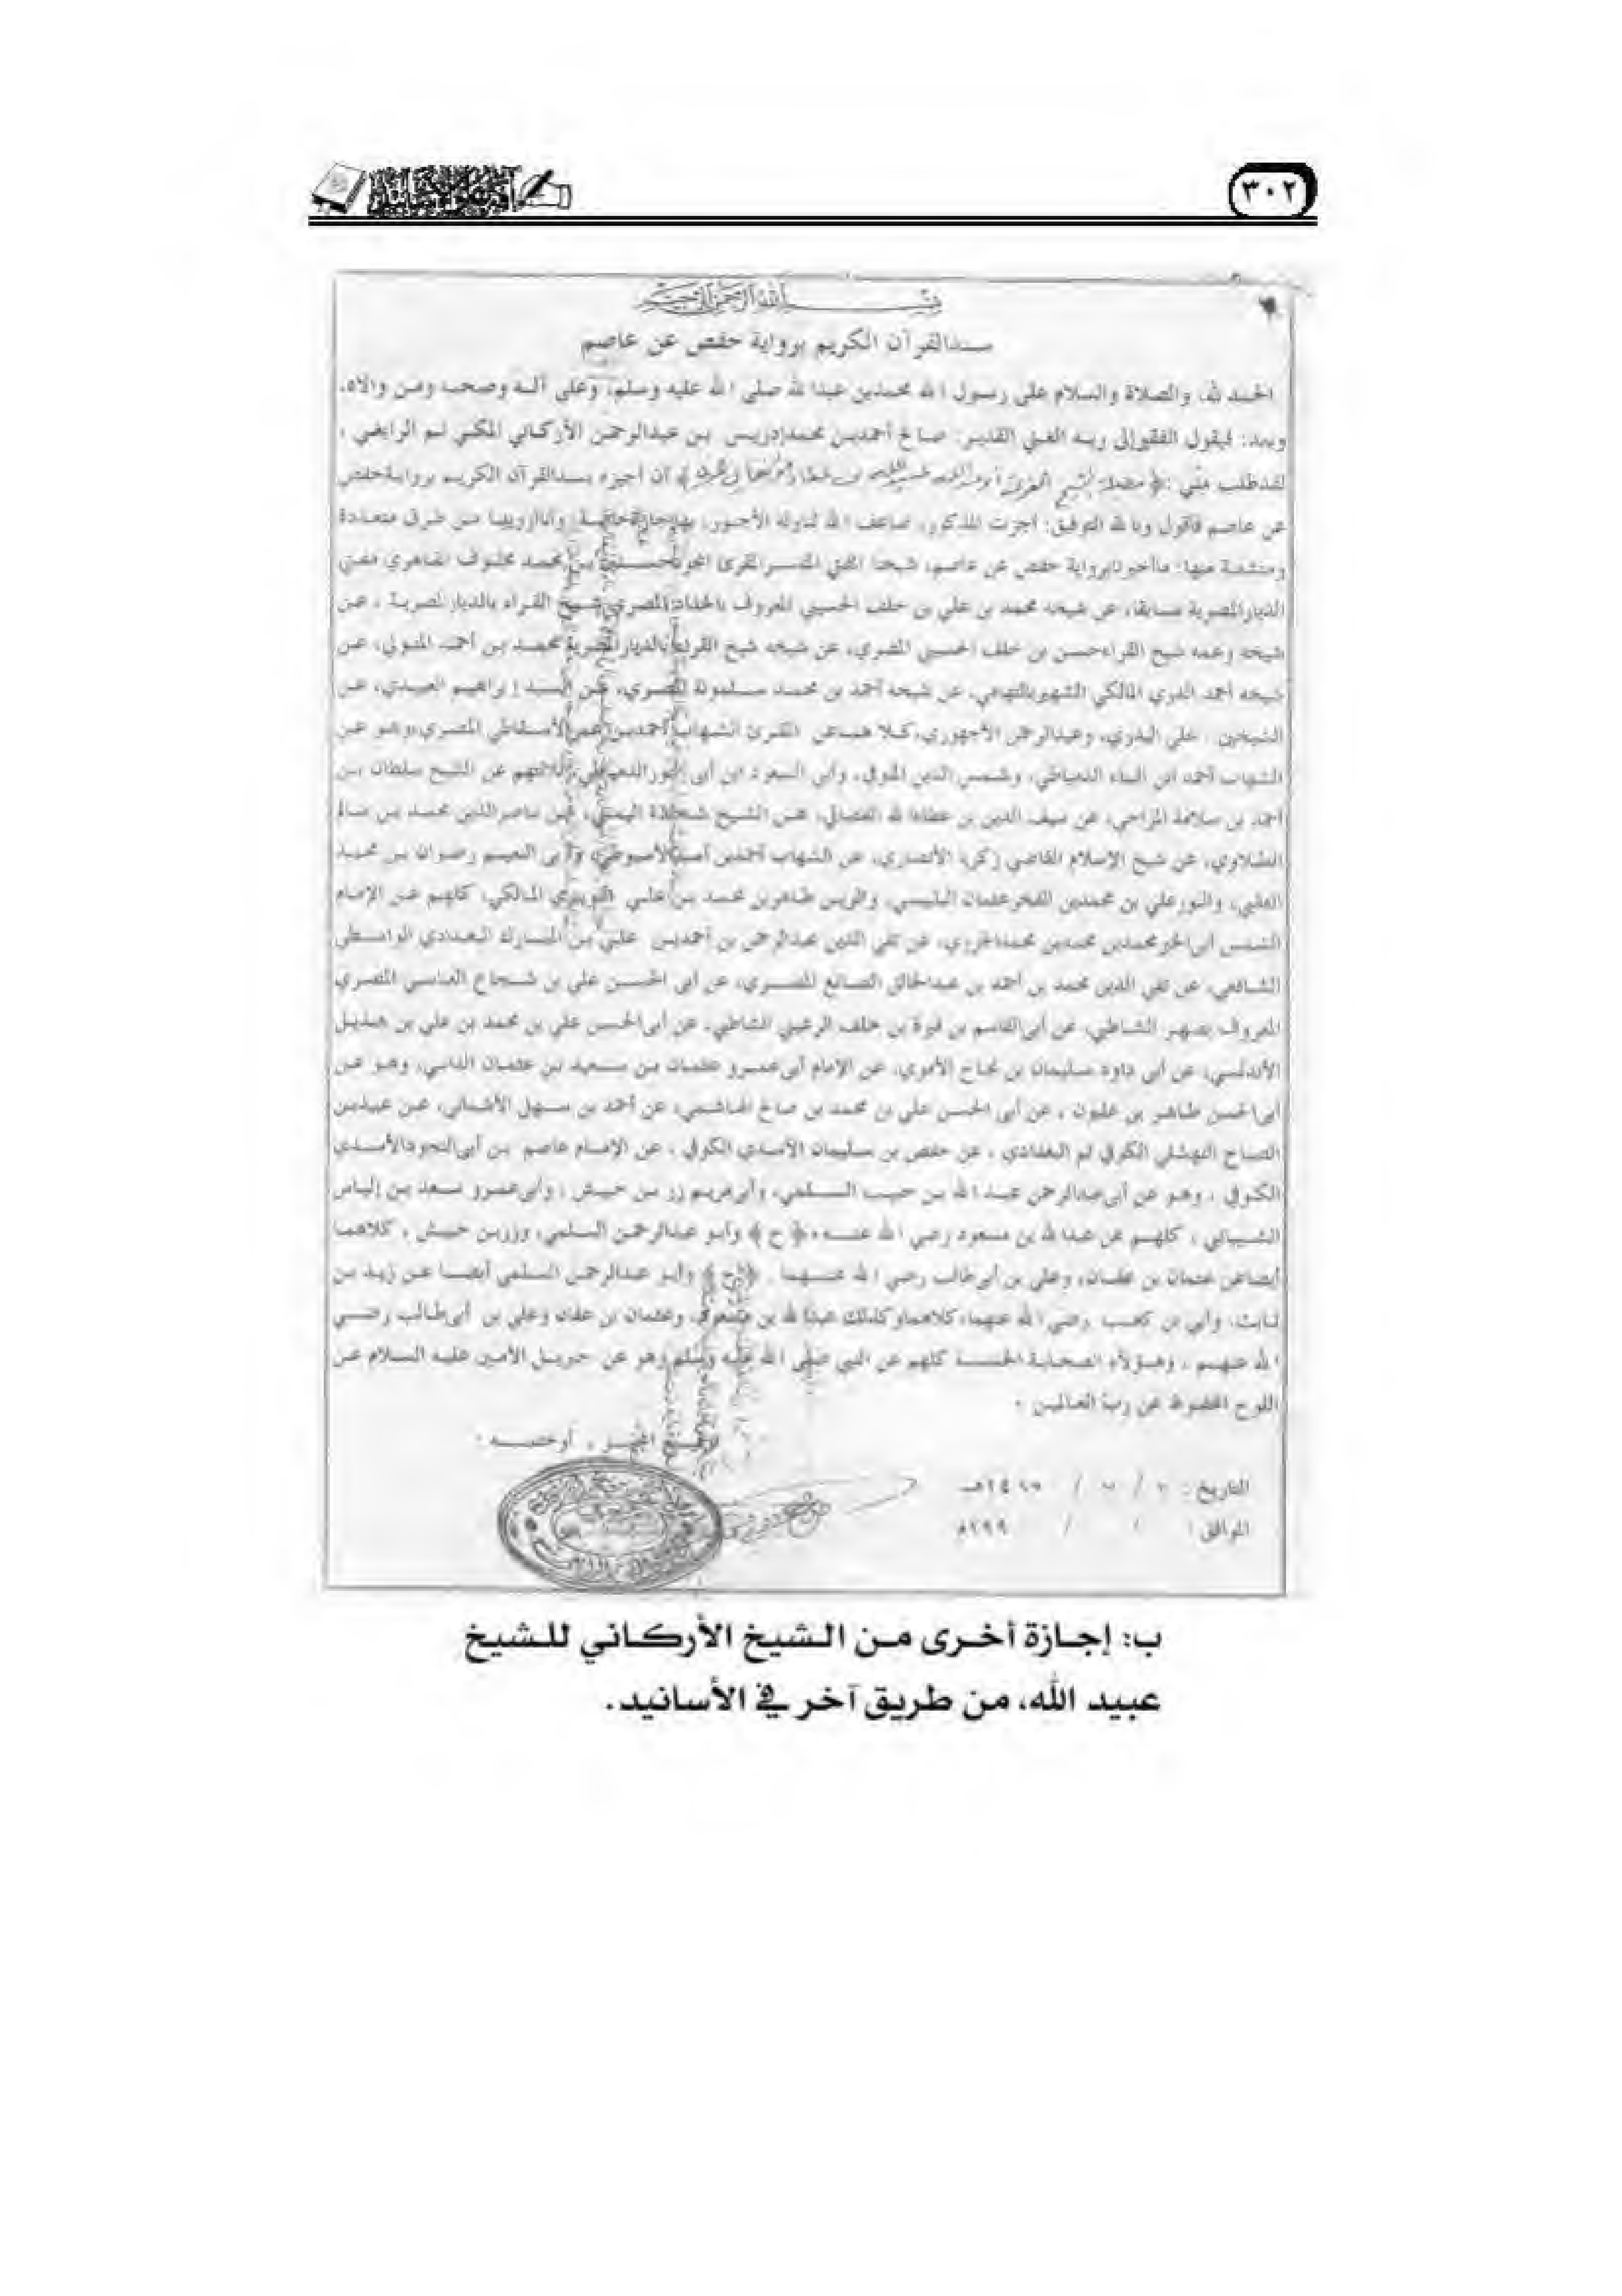 ٣٠٢
بسم الله الرحمن الرحيم
سند القرآن الكريم برواية حفص عن عاصم
الحمد لله، والصلاة والسلام على رسول الله محمد بن عبدالله صلى الله عليه وسلم، وعلى آله وصحبه ومن والاه،
وبعد: فيقول الفقير إلى ربه الغني القدير: صالح أحمد بن محمد إدريس بن عبدالرحمن الأركاني المكي ثم الرابغي،
لقد طلب مني: ﴿ فضيلة الشيخ المقرئ ﴾ أن أجيزه بسند القرآن الكريم برواية حفص
عن عاصم فأقول وبالله التوفيق: أجزت المذكور، ضاعف الله لي وله الأجور، بها إجازة خاصة، وأنا أرويها من طرق متعددة
ومتشعبة منها: ما أخبرنا برواية حفص عن عاصم، شيخنا المفسر المقرئ حسنين بن محمد مخلوف القاهري مفتي
الديار المصرية سابقا، عن شيخه محمد بن علي بن خلف الحسيني المعروف بالحداد المصري شيخ القراء بالديار المصرية، عن
شيخه وعمه شيخ القراء حسن بن خلف الحسيني المصري، عن شيخه شيخ القراء بالديار المصرية محمد بن أحمد المتولي، عن
شيخه أحمد الدري المالكي الشهير بالتهامي، عن شيخه أحمد بن محمد سلمونة المصري، عن السيد إبراهيم العبيدي، عن
الشيخين: علي البدري، وعبدالرحمن الأجهوري، كلاهما عن المقرئ الشهاب أحمد بن عمر الأسقاطي المصري، وهو عن
الشهاب أحمد ابن البناء الدمياطي، وشمس الدين المنوفي، وأبي السعود ابن أبي النور الدمياطي، ثلاثتهم عن الشيخ سلطان بن
أحمد بن سلامة المزاحي، عن سيف الدين بن عطاءالله الفضالي، عن الشيخ شحاذة اليمني، عن ناصرالدين محمد بن سالم
الطبلاوي، عن شيخ الإسلام القاضي زكريا الأنصاري، عن الشهاب أحمد بن أسد الأميوطي، وأبي النعيم رضوان بن محمد
العقبي، والنور علي بن محمد بن الفخر عثمان البلبيسي، والزين طاهر بن محمد بن علي النويري المالكي، كلهم عن الإمام
الشمس أبي الخير محمد بن محمد بن محمد الجزري، عن تقي الدين عبدالرحمن بن أحمد بن علي بن المبارك البغدادي الواسطي
الشافعي، عن تقي الدين محمد بن أحمد بن عبدالخالق الصائغ المصري، عن أبي الحسن علي بن شجاع العباسي المصري
المعروف بصهر الشاطبي، عن أبي القاسم بن فيرة بن خلف الرعيني الشاطبي، عن أبي الحسن علي بن محمد بن علي بن هذيل
الأندلسي، عن أبي داود سليمان بن نجاح الأموي، عن الإمام أبي عمرو عثمان بن سعيد بن عثمان الداني، وهو عن
أبي الحسن طاهر بن غلبون، عن أبي الحسن علي بن محمد بن صالح الهاشمي، عن أحمد بن سهل الأشناني، عن عبيد بن
الصباح النهشلي الكوفي ثم البغدادي، عن حفص بن سليمان الأسدي الكوفي، عن الإمام عاصم بن أبي النجود الأسدي
الكوفي، وهو عن أبي عبدالرحمن عبد الله بن حبيب السلمي، وأبي مريم زر بن حبيش، وأبي عمرو سعد بن إلياس
الشيباني، كلهم عن عبدالله بن مسعود رضي الله عنه، ﴿ ح ﴾ وأبو عبدالرحمن السلمي، وزر بن حبيش، كلاهما
أيضا عن عثمان بن عفان، وعلي بن أبي طالب رضي الله عنهما. ﴿ ح ﴾ وأبو عبدالرحمن السلمي أيضا عن زيد بن
ثابت، وأبي بن كعب رضي الله عنهما، كلاهما وكذلك عبدالله بن مسعود، وعثمان بن عفان وعلي بن أبي طالب رضي
الله عنهم، وهؤلاء الصحابة الخمسة كلهم عن النبي صلى الله عليه وسلم وهو عن جبريل الأمين عليه السلام عن
اللوح المحفوظ عن رب العالمين.
توقيع المجيز، أو ختمه.
التاريخ: / / ١٤هـ
الموافق: / / ١٩٩م
ب: إجازة أخرى من الشيخ الأركاني للشيخ
عبيد الله، من طريق آخر في الأسانيد.